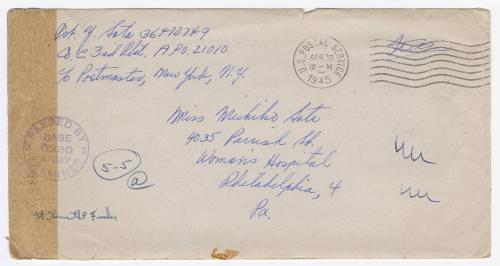 Pvt. Y. Sato 36472749
Co. C 3rd Plt. A.P.O. 21010
c/o Postmaster, New York, N.Y.
Free
U.S. POSTAL SERVICE
APR 30
12-M
1945
Miss Michiko Sato
4035 Parrish St.
Woman's Hospital
Philadelphia, 4
Pa.
PASSED BY
BASE
0380
ARMY
EXAMINER
5-5
a